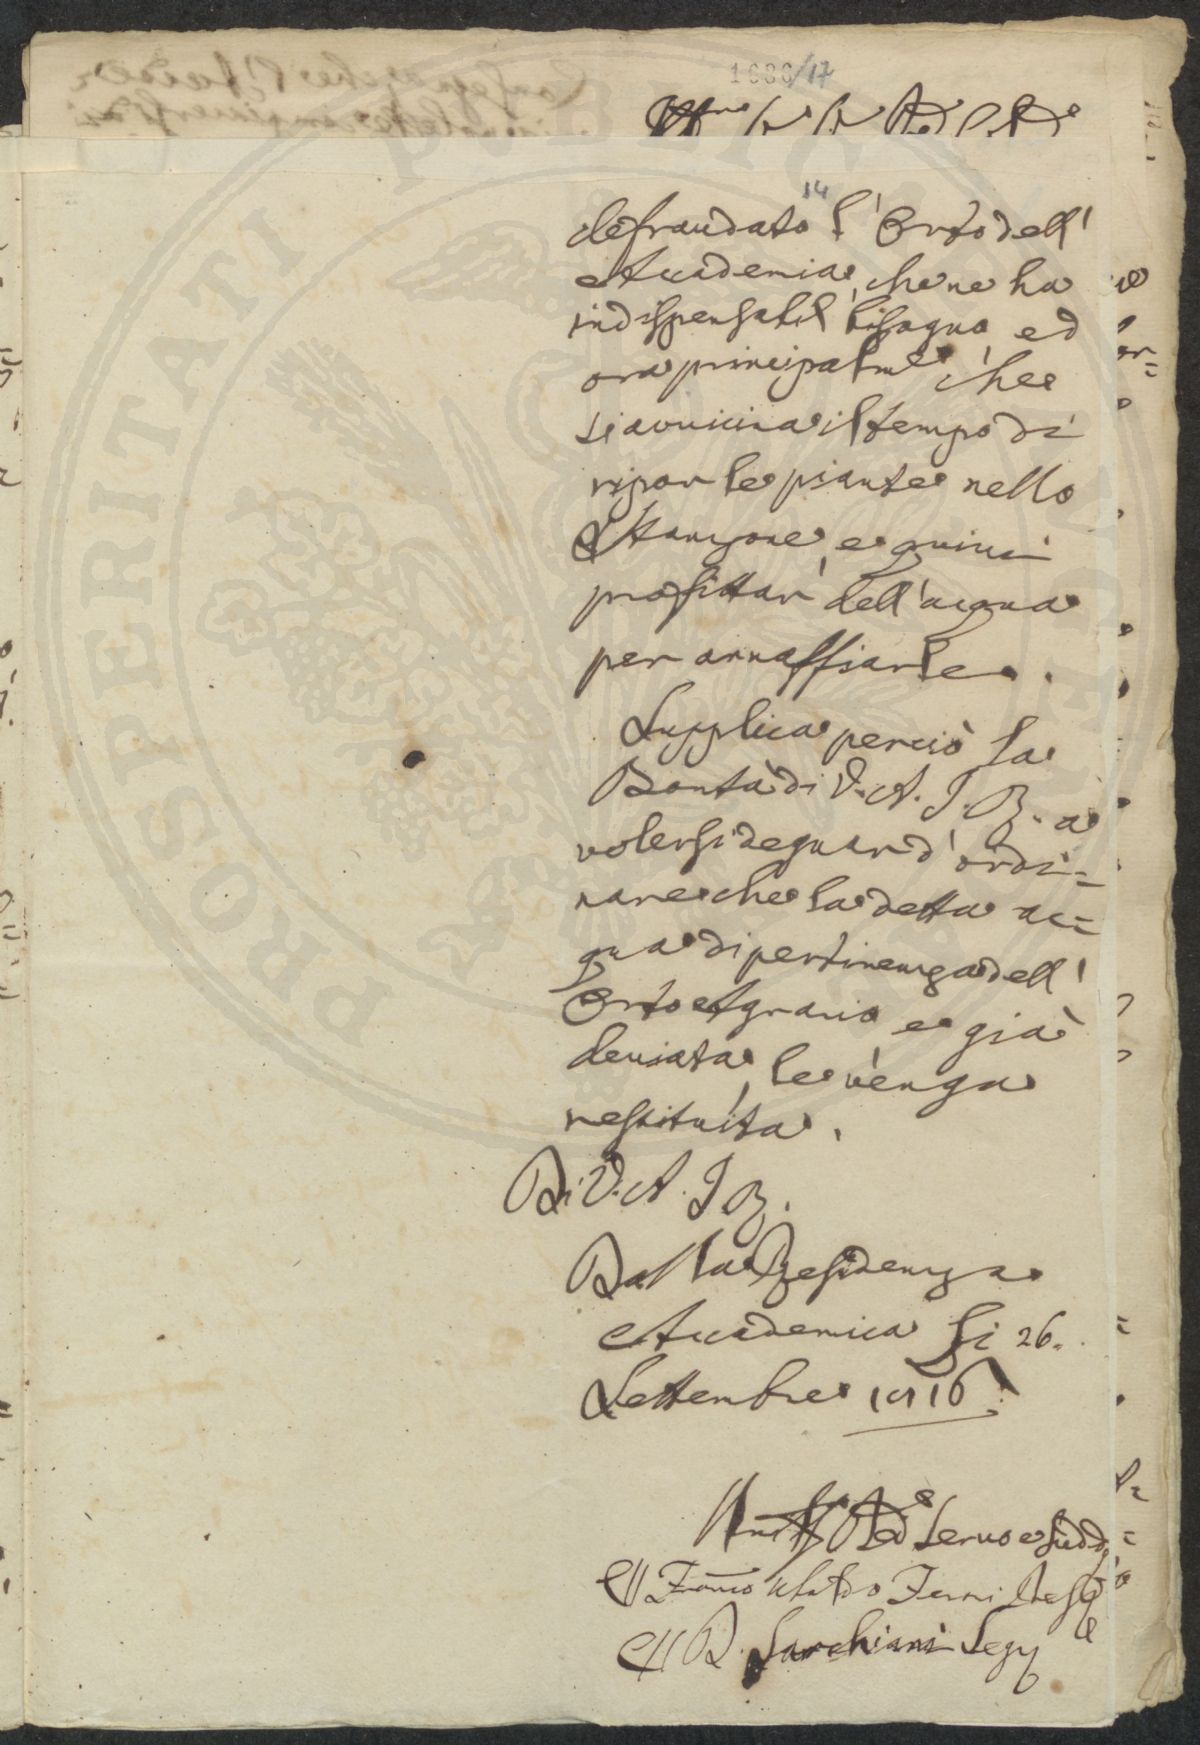 1686/17
14
defraudato l'Orto dell'
Accademia, che ne ha
indispensabil bisogno, ed
ora principalm.e che
si avvicina il tempo di
ripor le piante nello
Stanzone, e quindi
profittar dell'acqua
per annaffiarle.
Supplica perciò la
Bontà di V. A. I. R. a
volersi degnar d'ordi=
nare che la detta ac=
qua di pertinenza dell'
Orto Agrario e già
deviata, le venga
restituita.
Di V. A. I R.
Dalla Residenza
Accademica li 26.
Settembre 1816.
Servo e Sudd.
Ferri
D. Sarchiani Segr
PROSPERITATI PUBLICAE AUGENDAE